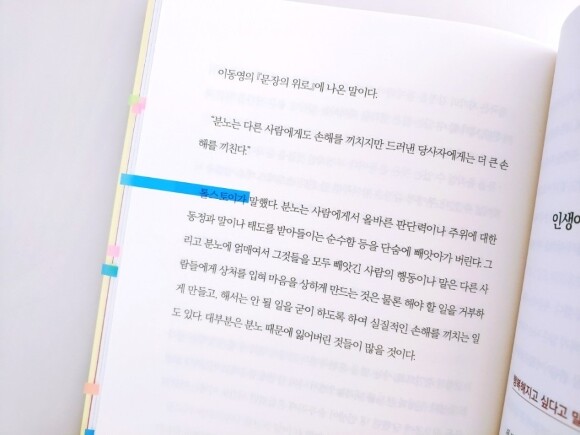 이동영의 『문장의 위로』에 나온 말이다.
"분노는 다른 사람에게도 손해를 끼치지만 드러낸 당사자에게는 더 큰 손
해를 끼친다."
톨스토이가 말했다. 분노는 사람에게서 올바른 판단력이나 주위에 대한
동정과 말이나 태도를 받아들이는 순수함 등을 단숨에 빼앗아가 버린다. 그
리고 분노에 얽매여서 그것들을 모두 빼앗긴 사람의 행동이나 말은 다른 사
람들에게 상처를 입혀 마음을 상하게 만드는 것은 물론 해야 할 일을 거부하
게 만들고, 해서는 안 될 일을 굳이 하도록 하여 실질적인 손해를 끼치는 일
도 있다. 대부분은 분노 때문에 잃어버린 것들이 많을 것이다.
인생에
행복해지고 싶다고 말